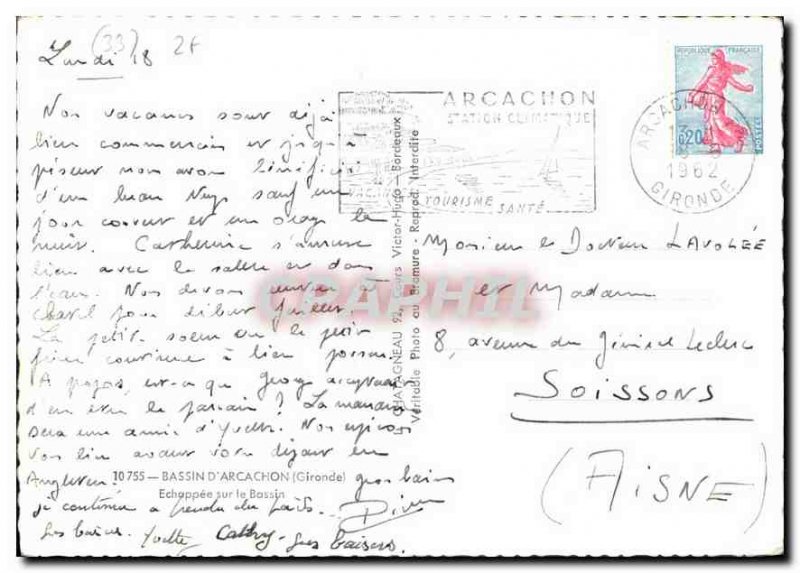 (33) 2F
Lundi 18
Nos vacances sont déjà
bien commencées et jusqu'à
nous avons bénéficié
d'un beau sauf un
jour couvert et un orage la
nuit. Catherine s'amuse
bien avec le sable et dans
l'eau. Nous devons à
pour début juillet.
La petite soeur ou le petit
frère continue à bien pousser.
A est-ce que
d'en être le parrain ? La marraine
sera une amie d'Yvette. Nous espérons
vous bien avant votre départ en
Angleterre. gros baisers
je continue à prendre du poids. -
Gros baisers. Yvette Cathy - gros baisers.
10 755 — BASSIN D'ARCACHON (Gironde)
Echappée sur le Bassin
CHATAGNEAU 92, Cours Victor-Hugo - Bordeaux
Véritable Photo au Bromure - Reprod. Interdite
ARCACHON
STATION CLIMATIQUE
TOURISME
SANTÉ
ARCACHON
1962
GIRONDE
REPUBLIQUE FRANÇAISE
0,20
POSTES
Monsieur le Docteur LAVOLÉE
et Madame
8, avenue du Général Leclerc
SOISSONS
(AISNE)
CPAPHIL